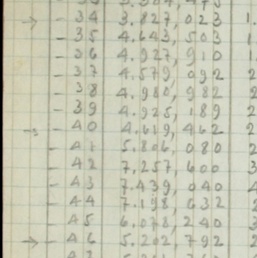 → - 34 3.827,023 1.
- 35 4.643,503 1.
- 36 4.927,910 1.
- 37 4.579,092 2
- 38 4.980,982 2
- 39 4.925,189 2
→ - 40 4.619,462 2
- 41 5.806,080 2
- 42 7,257,600 3
- 43 7.439,040 4
- 44 7.198,632 2
- 45 6.078,240 3
→ - 46 5.202,792 2